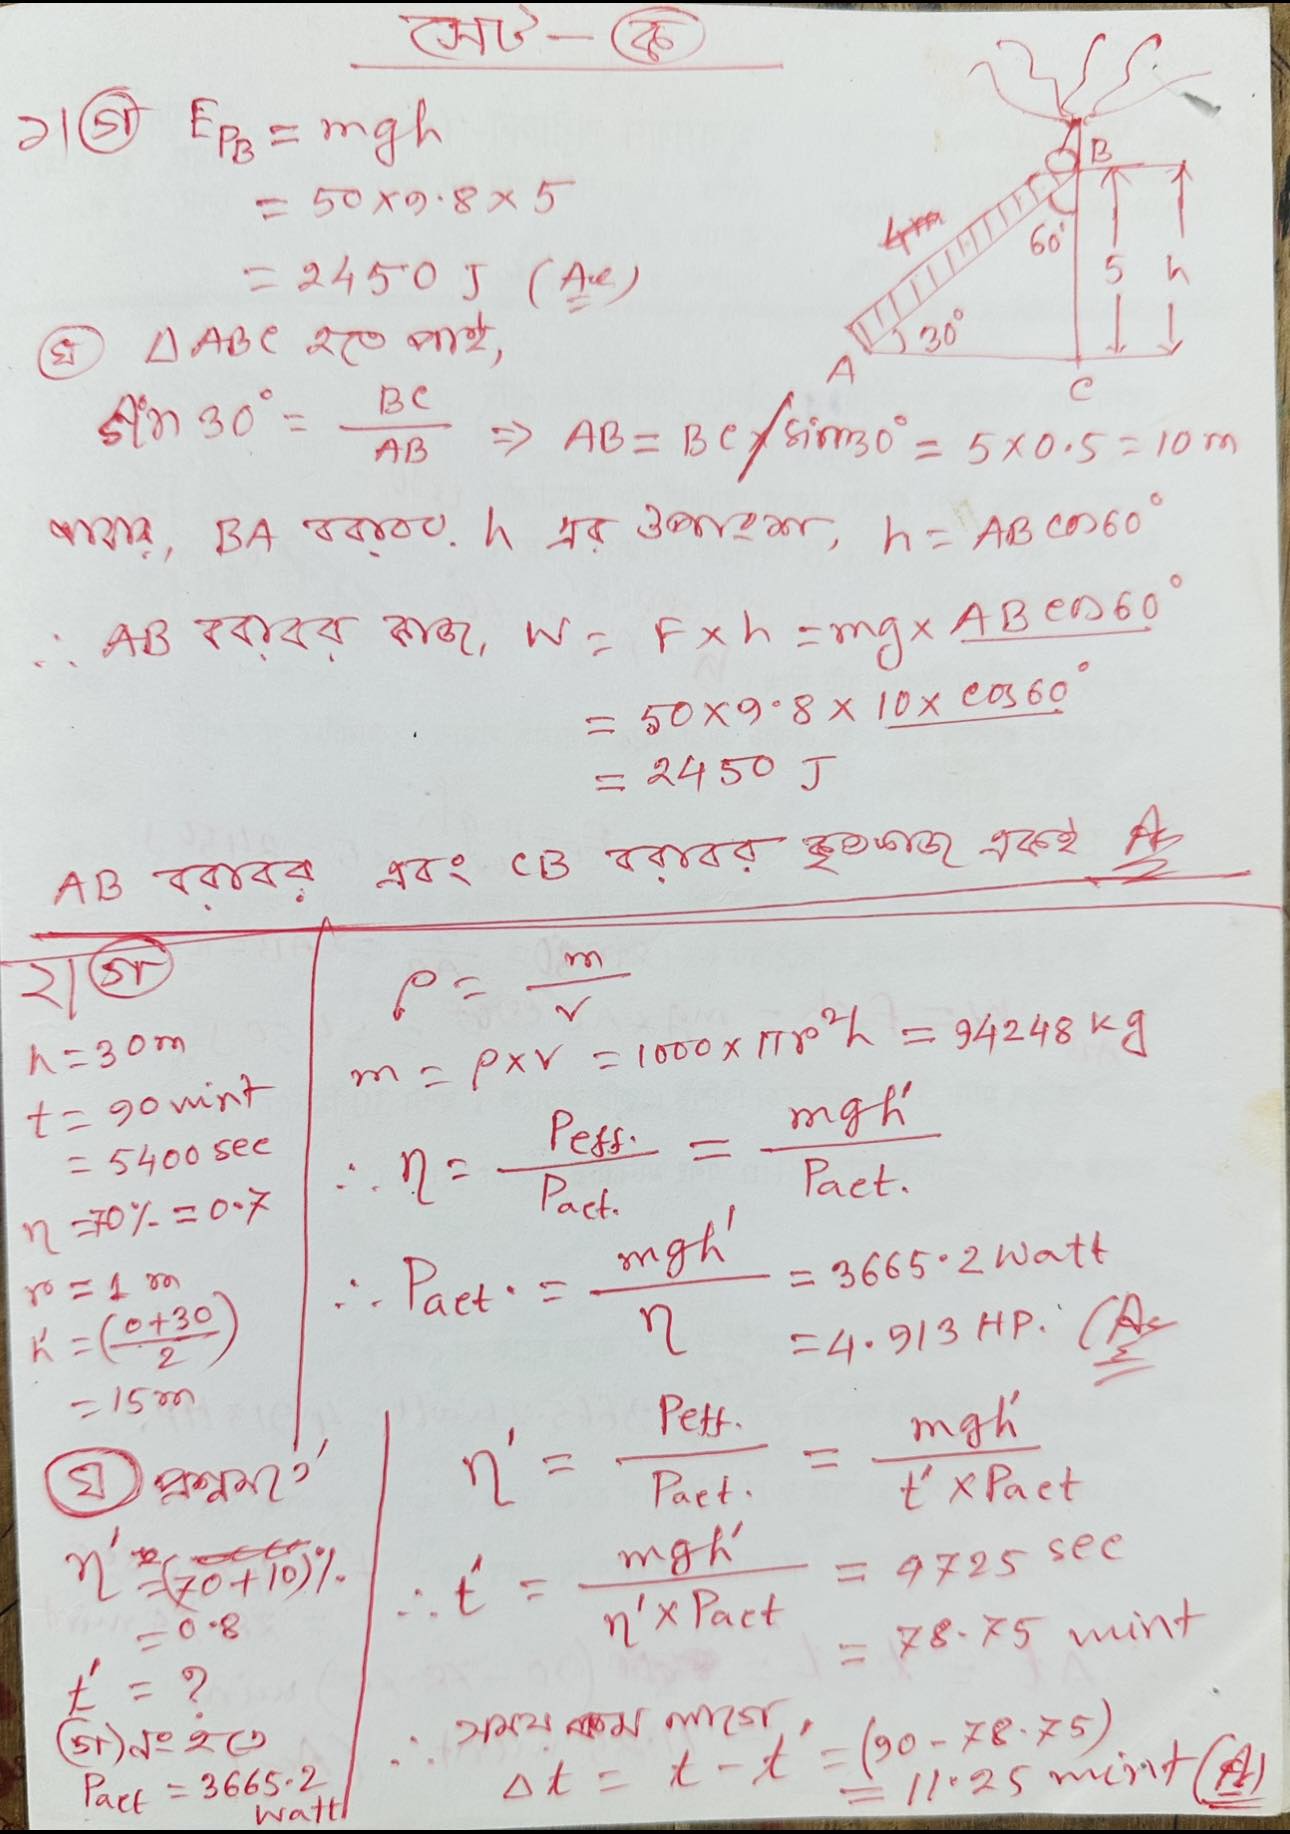 সেট - ক
১। গ E_PB = mgh
= 50 × 9.8 × 5
= 2450 J (Ans)
B
4m
60°
5 h
30°
A
C
ঘ △ ABC হতে পাই,
sin 30° = BC/AB ⇒ AB = BC / sin30° = 5 × 0.5 = 10 m
আবার, BA বরাবর h এর উপাংশ, h = AB cos60°
∴ AB বরাবর কাজ, W = F × h = mg × AB cos60°
= 50 × 9.8 × 10 × cos60°
= 2450 J
AB বরাবর এবং CB বরাবর কৃতকাজ একই Ans
২। গ
h = 30m
t = 90 mint
= 5400 sec
η = 70% = 0.7
r = 1 m
h' = (0+30/2)
= 15m
ρ = m/v
m = ρ × v = 1000 × πr²h = 94248 kg
∴ η = Peff./Pact. = mgh'/Pact.
∴ Pact. = mgh'/η = 3665.2 Watt
= 4.913 HP. (Ans
ঘ প্রশ্নমতে,
η' = (70+10)%
= 0.8
t' = ?
(গ) নং হতে
Pact = 3665.2
Watt
η' = Peff./Pact. = mgh'/t' × Pact
∴ t' = mgh'/η' × Pact = 4725 sec
= 78.75 mint
∴ সময় কম লাগে,
Δt = t - t' = (90 - 78.75)
= 11.25 mint (A)